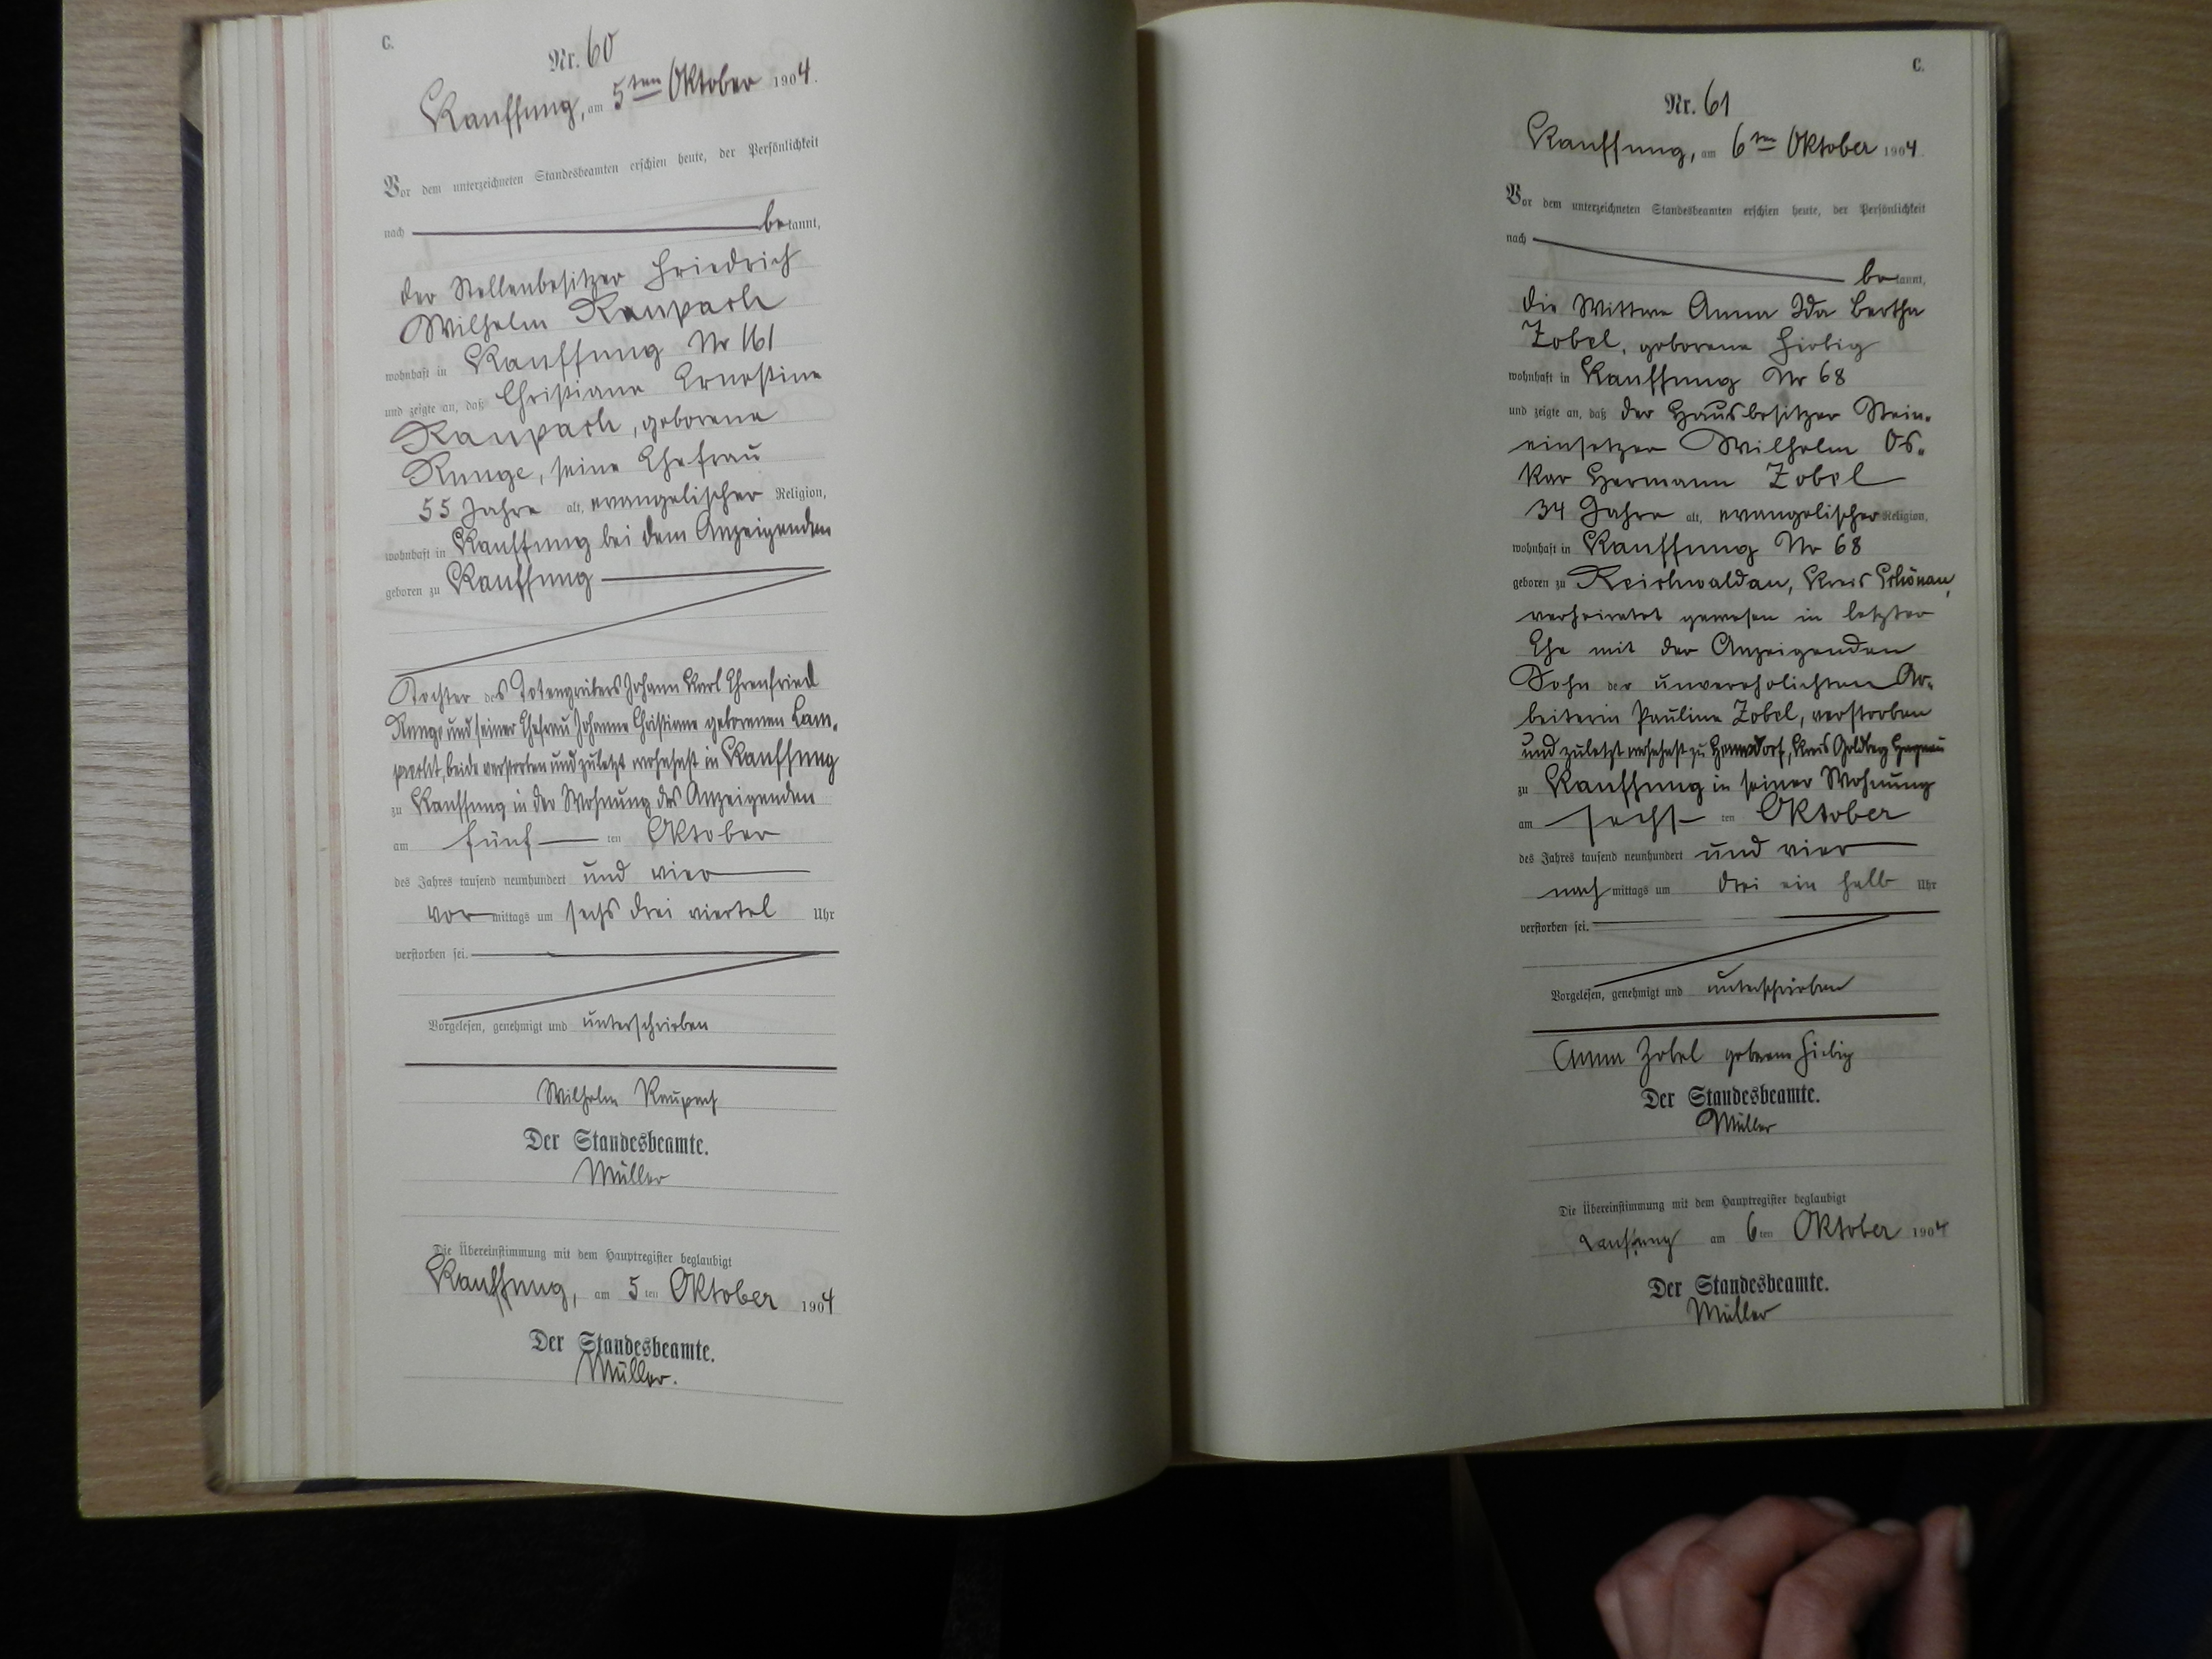 C.
Nr. 60
Kauffung, am 5ten Oktober 1904.
Vor dem unterzeichneten Standesbeamten erschien heute, der Persönlichkeit
nach bekannt,
der Stellenbesitzer Friedrich
Wilhelm Raupach
wohnhaft in Kauffung Nr 161
und zeigte an, daß Christiane Ernestine
Raupach, geborene
Runge, seine Ehefrau
55 Jahre alt, evangelischer Religion,
wohnhaft in Kauffung bei dem Anzeigenden
geboren zu Kauffung
Tochter des Totengräbers Johann Karl Ehrenfried
Runge und seiner Ehefrau Johanne Christiane geborenen Lam-
precht, beide verstorben und zuletzt wohnhaft in Kauffung
zu Kauffung in der Wohnung des Anzeigenden
am fünf ten Oktober
des Jahres tausend neunhundert und vier
vormittags um sechs drei viertel Uhr
verstorben sei.
Vorgelesen, genehmigt und unterschrieben
Wilhelm Raupach
Der Standesbeamte.
Müller
Die Übereinstimmung mit dem Hauptregister beglaubigt
Kauffung, am 5ten Oktober 1904
Der Standesbeamte.
Müller.
C.
Nr. 61
Kauffung, am 6ten Oktober 1904
Vor dem unterzeichneten Standesbeamten erschien heute, der Persönlichkeit
nach
bekannt,
die Wittwe Anna Ida Bertha
Zobel, geborene Fiebig
wohnhaft in Kauffung Nr 68
und zeigte an, daß der Hausbesitzer Stein-
einsetzer Wilhelm Os-
kar Hermann Zobel
34 Jahre alt, evangelischer Religion,
wohnhaft in Kauffung Nr 68
geboren zu Reichwaldau, Kreis Schönau,
verheiratet gewesen in letzter
Ehe mit der Anzeigenden
Sohn der unverehelichten Ar-
beiterin Pauline Zobel, verstorben
und zuletzt wohnhaft zu Hermsdorf, Kreis Goldberg Haynau
zu Kauffung in seiner Wohnung
am sechs ten Oktober
des Jahres tausend neunhundert und vier
nachmittags um drei ein halb Uhr
verstorben sei.
Vorgelesen, genehmigt und unterschrieben
Anna Zobel geborene Fiebig
Der Standesbeamte.
Müller
Die Übereinstimmung mit dem Hauptregister beglaubigt
Kauffung am 6ten Oktober 1904
Der Standesbeamte.
Müller